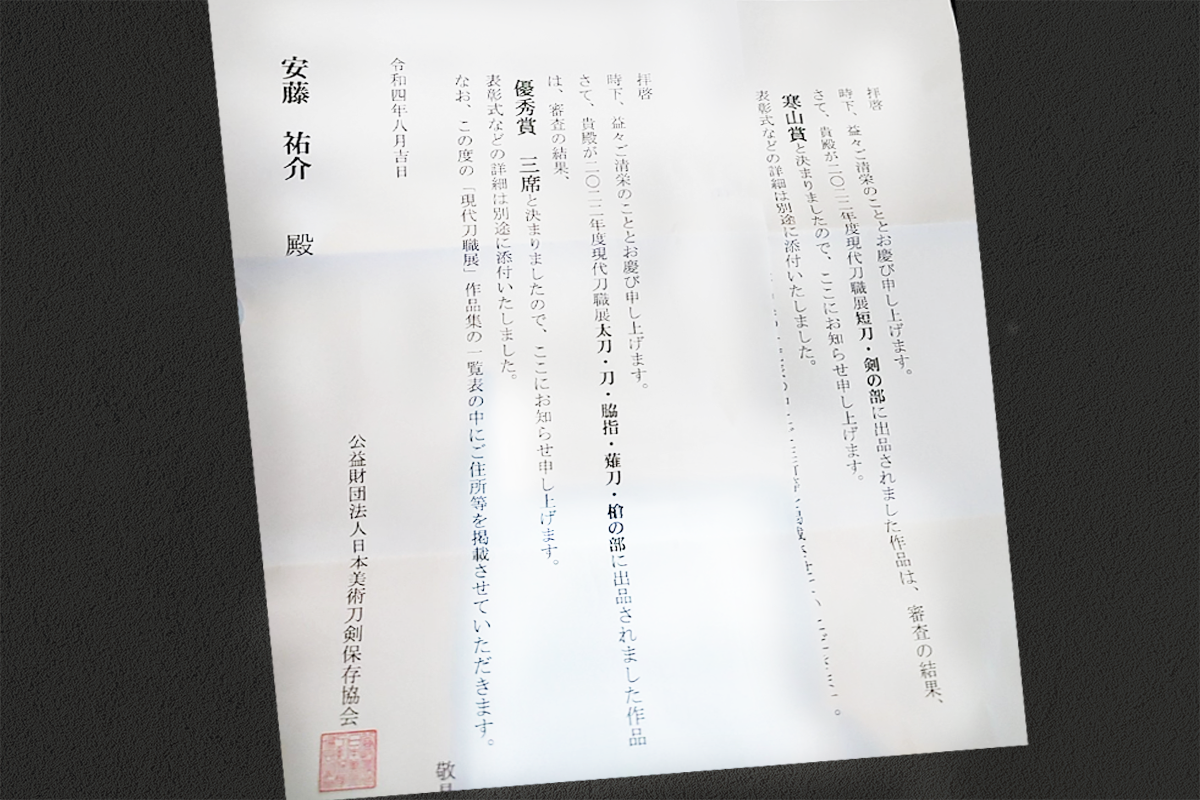 拝啓
時下、益々ご清栄のこととお慶び申し上げます。
さて、貴殿が二〇二二年度現代刀職展短刀・剣の部に出品されました作品は、審査の結果、
寒山賞と決まりましたので、ここにお知らせ申し上げます。
表彰式などの詳細は別途に添付いたしました。
拝啓
時下、益々ご清栄のこととお慶び申し上げます。
さて、貴殿が二〇二二年度現代刀職展太刀・刀・脇指・薙刀・槍の部に出品されました作品
は、審査の結果、
優秀賞　三席と決まりましたので、ここにお知らせ申し上げます。
表彰式などの詳細は別途に添付いたしました。
なお、この度の「現代刀職展」作品集の一覧表の中にご住所等を掲載させていただきます。
敬
令和四年八月吉日
公益財団法人日本美術刀剣保存協会
安藤　祐介　殿